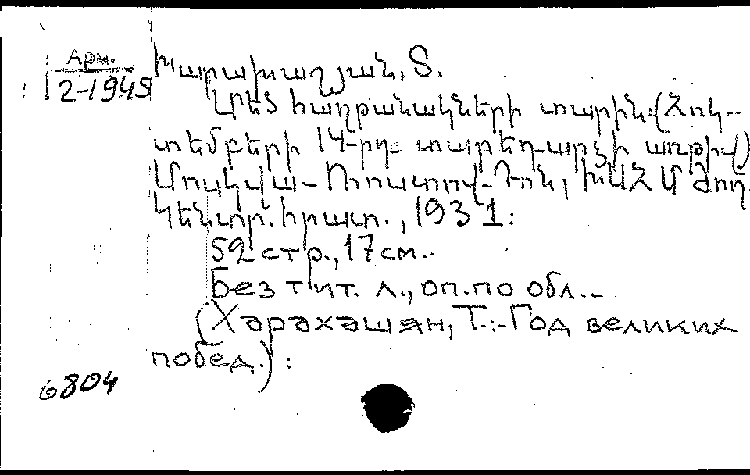 Арм.
2-1945
Խարախաշյան, Տ.
Մեծ հաղթանակների տարին: (Հոկ-
տեմբերի 14-րդ տարեդարձի առթիվ)
Մոսկվա-Ռոստով-Դոն, ԽՍՀՄ ժող.
Կենտր. հրատ., 1931:
52 стр., 17см..
Без тит. л., оп. по обл..
(Харахашян, Т.:-Год великих
побед.):
6804